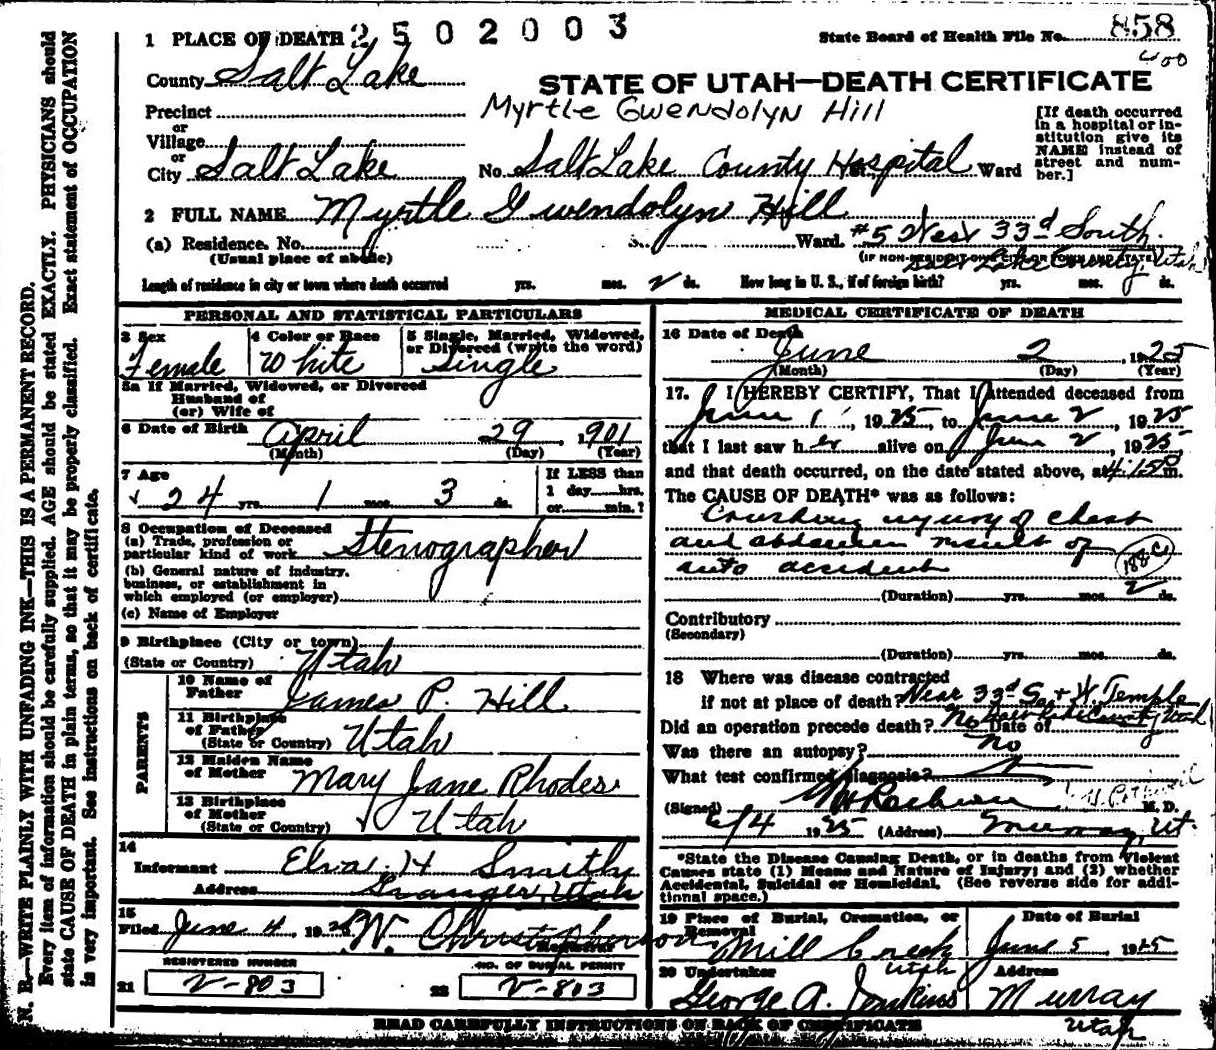 2 5 0 2 0 0 3
1 PLACE OF DEATH
State Board of Health File No. 858
400
County Salt Lake
STATE OF UTAH—DEATH CERTIFICATE
Precinct
Myrtle Gwendolyn Hill
or
Village
or
City Salt Lake No. Salt Lake County Hospital Ward
[If death occurred in a hospital or institution give its NAME instead of street and number.]
2 FULL NAME Myrtle Gwendolyn Hill
(a) Residence. No. S. Ward. #5 West 33d South.
(Usual place of abode) (IF NON-RESIDENT GIVE CITY OR TOWN AND STATE)
Salt Lake County, Utah
Length of residence in city or town where death occurred yrs. mos. 2 ds. How long in U. S., if of foreign birth? yrs. mos. ds.
PERSONAL AND STATISTICAL PARTICULARS
3 Sex
Female
4 Color or Race
White
5 Single, Married, Widowed, or Divorced (write the word)
Single
5a If Married, Widowed, or Divorced
Husband of
(or) Wife of
6 Date of Birth April 29, 1901
(Month) (Day) (Year)
7 Age
24 yrs. 1 mos. 3 ds.
If LESS than
1 day hrs.
or min.?
8 Occupation of Deceased
(a) Trade, profession or
particular kind of work Stenographer
(b) General nature of industry,
business, or establishment in
which employed (or employer)
(c) Name of Employer
9 Birthplace (City or town)
(State or Country) Utah
PARENTS
10 Name of
Father James P. Hill
11 Birthplace
of Father
(State or Country) Utah
12 Maiden Name
of Mother Mary Jane Rhodes
13 Birthplace
of Mother
(State or Country) Utah
14
Informant Elva H Smith
Address Granger, Utah
15
Filed June 4, 1925 W. Christopherson
Registrar
REGISTERED NUMBER
21 V-803
NO. OF BURIAL PERMIT
22 V-803
MEDICAL CERTIFICATE OF DEATH
16 Date of Death
June 2, 1925
(Month) (Day) (Year)
17. I HEREBY CERTIFY, That I attended deceased from
June 1, 1925, to June 2, 1925
that I last saw her alive on June 2, 1925
and that death occurred, on the date stated above, at 4:15 P m.
The CAUSE OF DEATH* was as follows:
Crushing injury of chest
and abdomen result of
auto accident
188c
(Duration) yrs. mos. 2 ds.
Contributory
(Secondary)
(Duration) yrs. mos. ds.
18 Where was disease contracted
if not at place of death? Near 33d So. + W Temple
Salt Lake County Utah
Did an operation precede death? No Date of
Was there an autopsy? no
What test confirmed diagnosis?
(Signed) M. D.
6/4 1925 (Address) Murray, Ut.
*State the Disease Causing Death, or in deaths from Violent
Causes state (1) Means and Nature of Injury; and (2) whether
Accidental, Suicidal or Homicidal. (See reverse side for addi-
tional space.)
19 Place of Burial, Cremation, or
Removal
Mill Creek
Utah
Date of Burial
June 5 1925
20 Undertaker
George A. Jenkins
Address
Murray
Utah
READ CAREFULLY INSTRUCTIONS ON BACK OF CERTIFICATE
N. B.—WRITE PLAINLY WITH UNFADING INK—THIS IS A PERMANENT RECORD.
Every item of information should be carefully supplied. AGE should be stated EXACTLY. PHYSICIANS should
state CAUSE OF DEATH in plain terms, so that it may be properly classified. Exact statement of OCCUPATION
is very important. See instructions on back of certificate.